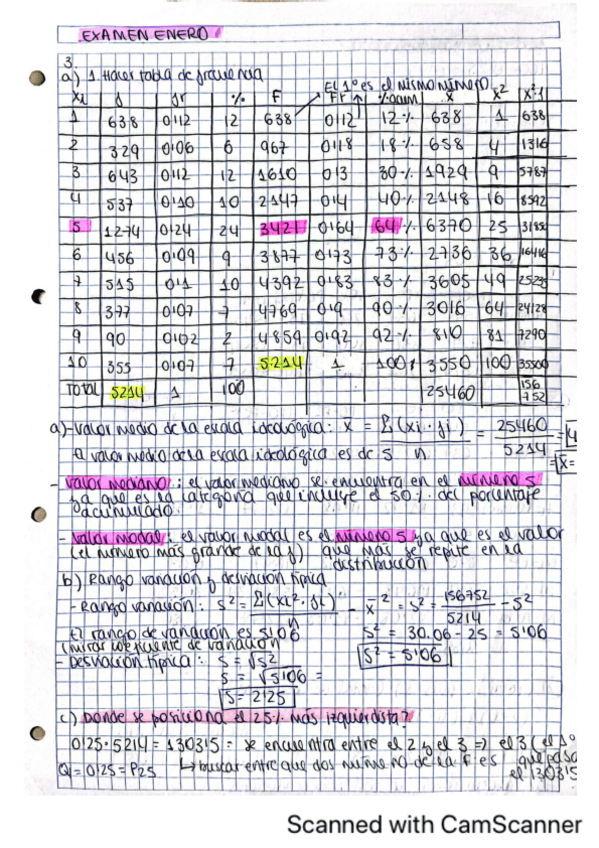 EXAMEN ENERO
3.
a) 1. Hacer tabla de frecuencia
El 1º es el mismo número
xi f fr % F Fr %acum x x² x²·f
1 638 0'12 12 638 0'12 12% 638 1 638
2 329 0'06 6 967 0'18 18% 658 4 1316
3 643 0'12 12 1610 0'3 30% 1929 9 5787
4 537 0'10 10 2147 0'4 40% 2148 16 8592
5 1274 0'24 24 3421 0'64 64% 6370 25 31850
6 456 0'09 9 3877 0'73 73% 2736 36 16416
7 515 0'1 10 4392 0'83 83% 3605 49 25235
8 377 0'07 7 4769 0'9 90% 3016 64 24128
9 90 0'02 2 4859 0'92 92% 810 81 7290
10 355 0'07 7 5214 1 100% 3550 100 35500
TOTAL 5214 1 100 25460 156752
a)-Valor medio de la escala ideológica: x = Σ(xi·fi) / n = 25460 / 5214 =
El valor medio de la escala ideológica es de 5
x̄ =
- Valor mediano: el valor mediano se encuentra en el número 5
ya que es la categoría que incluye el 50% del porcentaje
acumulado.
- Valor modal: el valor modal es el número 5 ya que es el valor
(el número más grande de la f) que más se repite en la
distribución
b) Rango variación y desviación típica
- Rango variación: s² = Σ(xi²·fi) / n - x̄² = s² = 156752 / 5214 - 5²
El rango de variación es 5'06 s² = 30.06 - 25 = 5'06
(mirar coeficiente de variación s² = 5'06
- Desviación típica: s = √s²
s = √5'06 =
s = 2'25
c) Donde se posiciona el 25% más izquierdista?
0'25·5214 = 1303'5 = se encuentra entre el 2 y el 3 => el 3 (el 1º
Q1 = 0'25 = P25 ↳ buscar entre que dos número de la F es que pasa
el 1303'5
Scanned with CamScanner